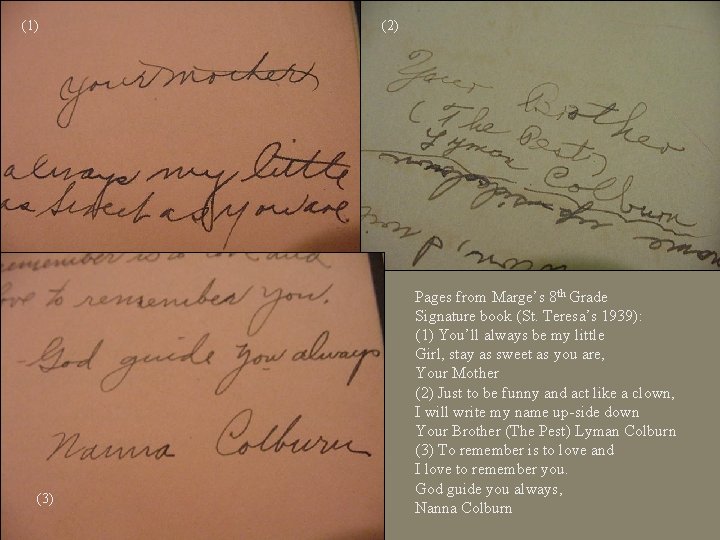 (1)
your mother
always my little
as sweet as you are
(2)
Your Brother
(The Pest)
Lyman Colburn
name up-side down
(3)
remember is to love and
love to remember you.
God guide you always
Nanna Colburn
Pages from Marge’s 8th Grade
Signature book (St. Teresa’s 1939):
(1) You’ll always be my little
Girl, stay as sweet as you are,
Your Mother
(2) Just to be funny and act like a clown,
I will write my name up-side down
Your Brother (The Pest) Lyman Colburn
(3) To remember is to love and
I love to remember you.
God guide you always,
Nanna Colburn